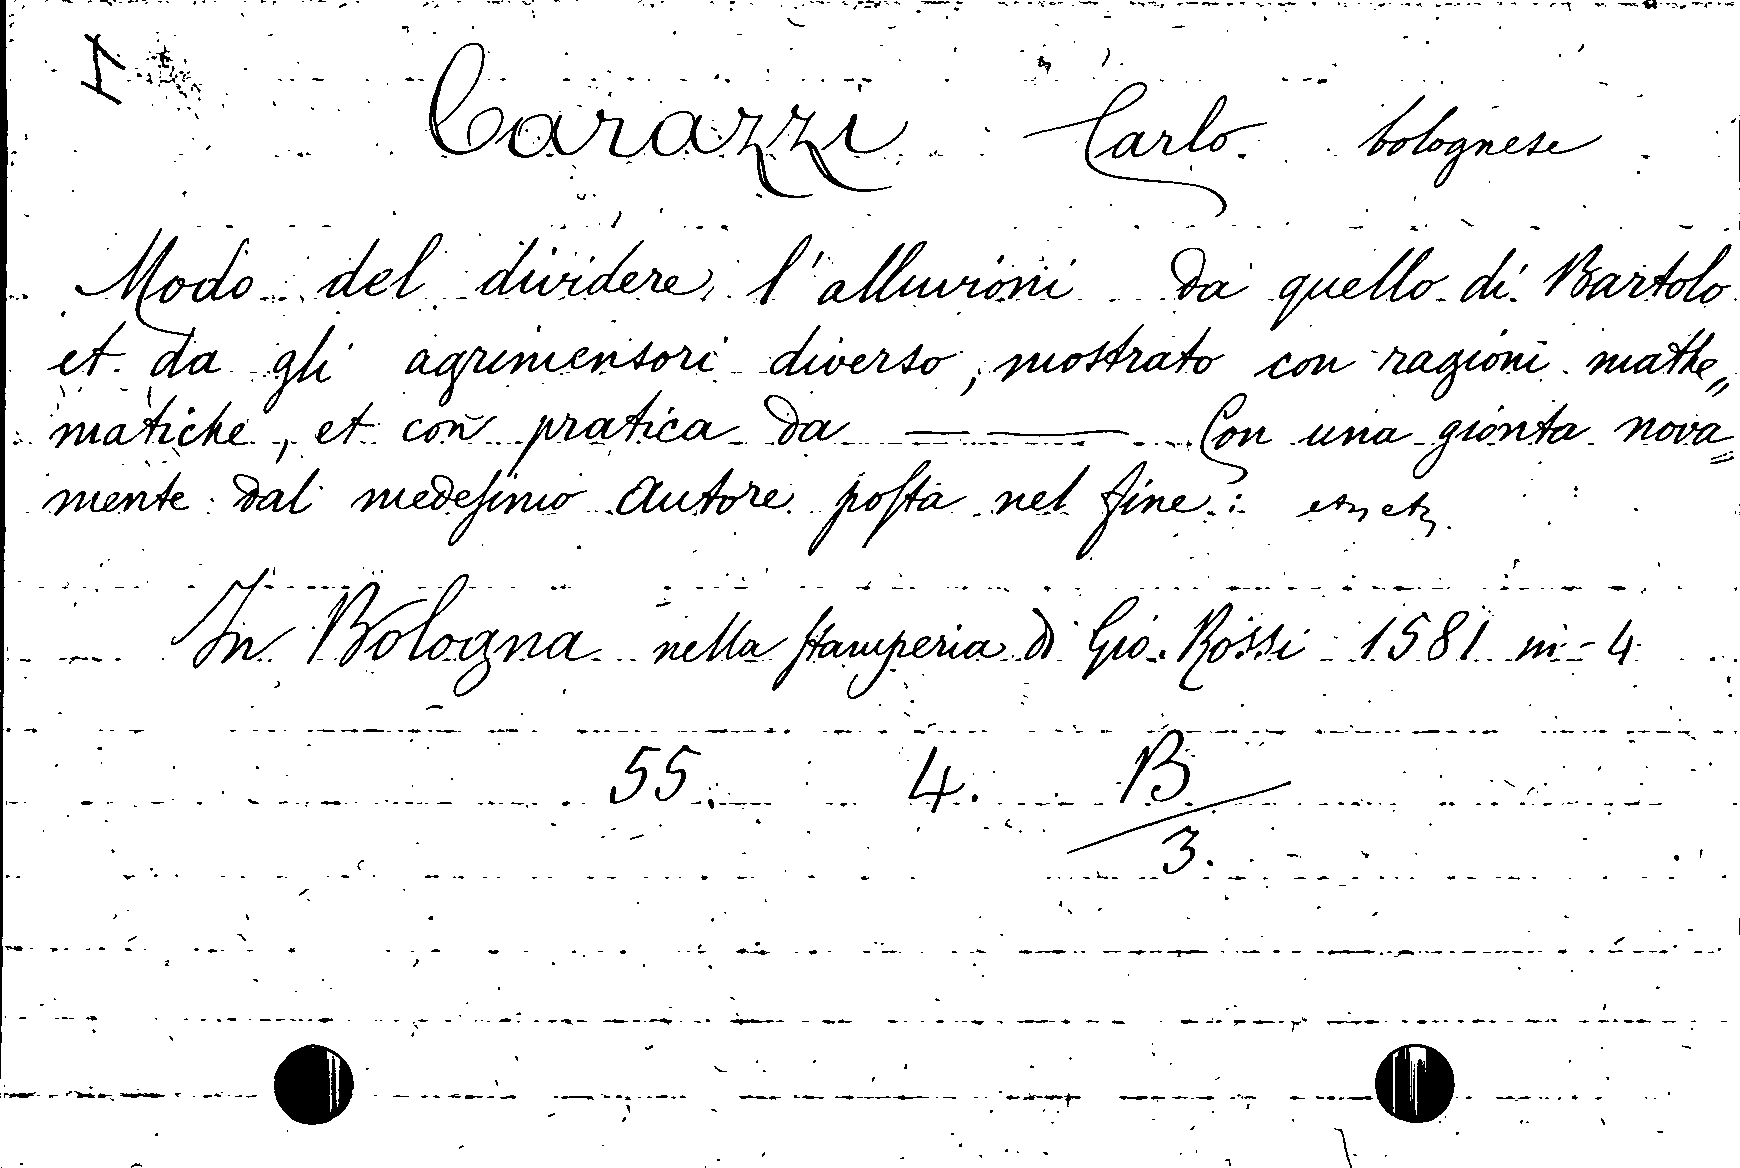 1
Carazzi Carlo. bolognese
Modo del dividere l'alluvioni da quello di Bartolo
et da gli agrimensori diverso, mostrato con ragioni mathe„
matiche, et con pratica da — — Con una gionta nova=
mente dal medeſimo autore poſta nel fine: etz etz.
In Bologna nella ſtamperia di Gio. Rossi 1581 in-4
55. 4. B/3.